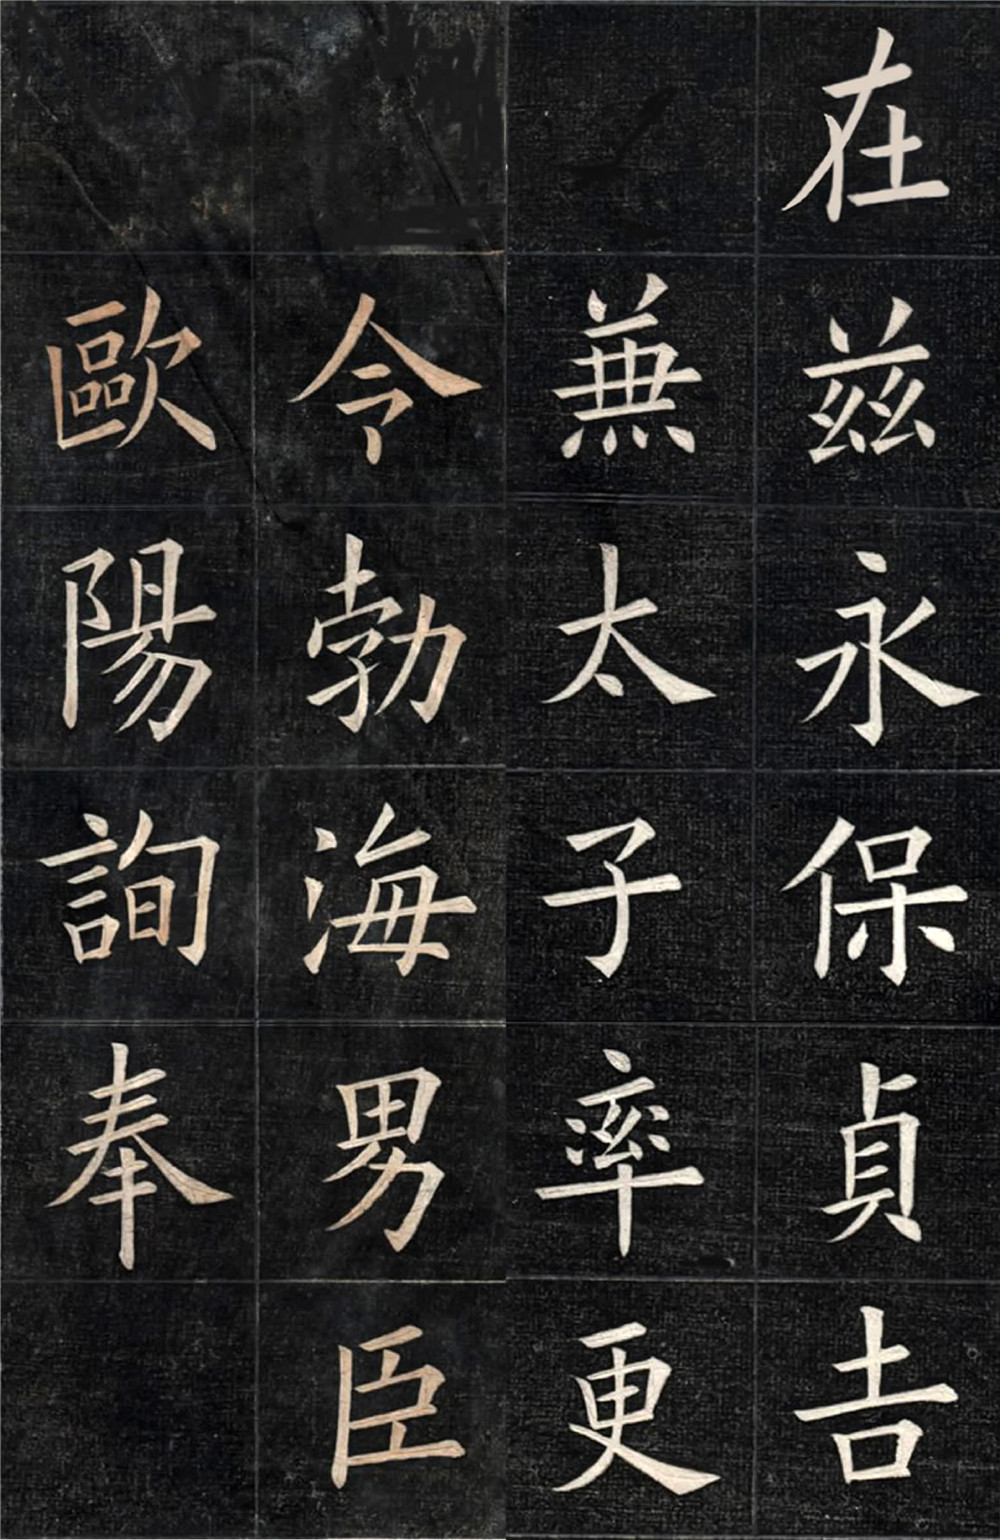 在茲永保貞吉
兼太子率更
令勃海男臣
歐陽詢奉